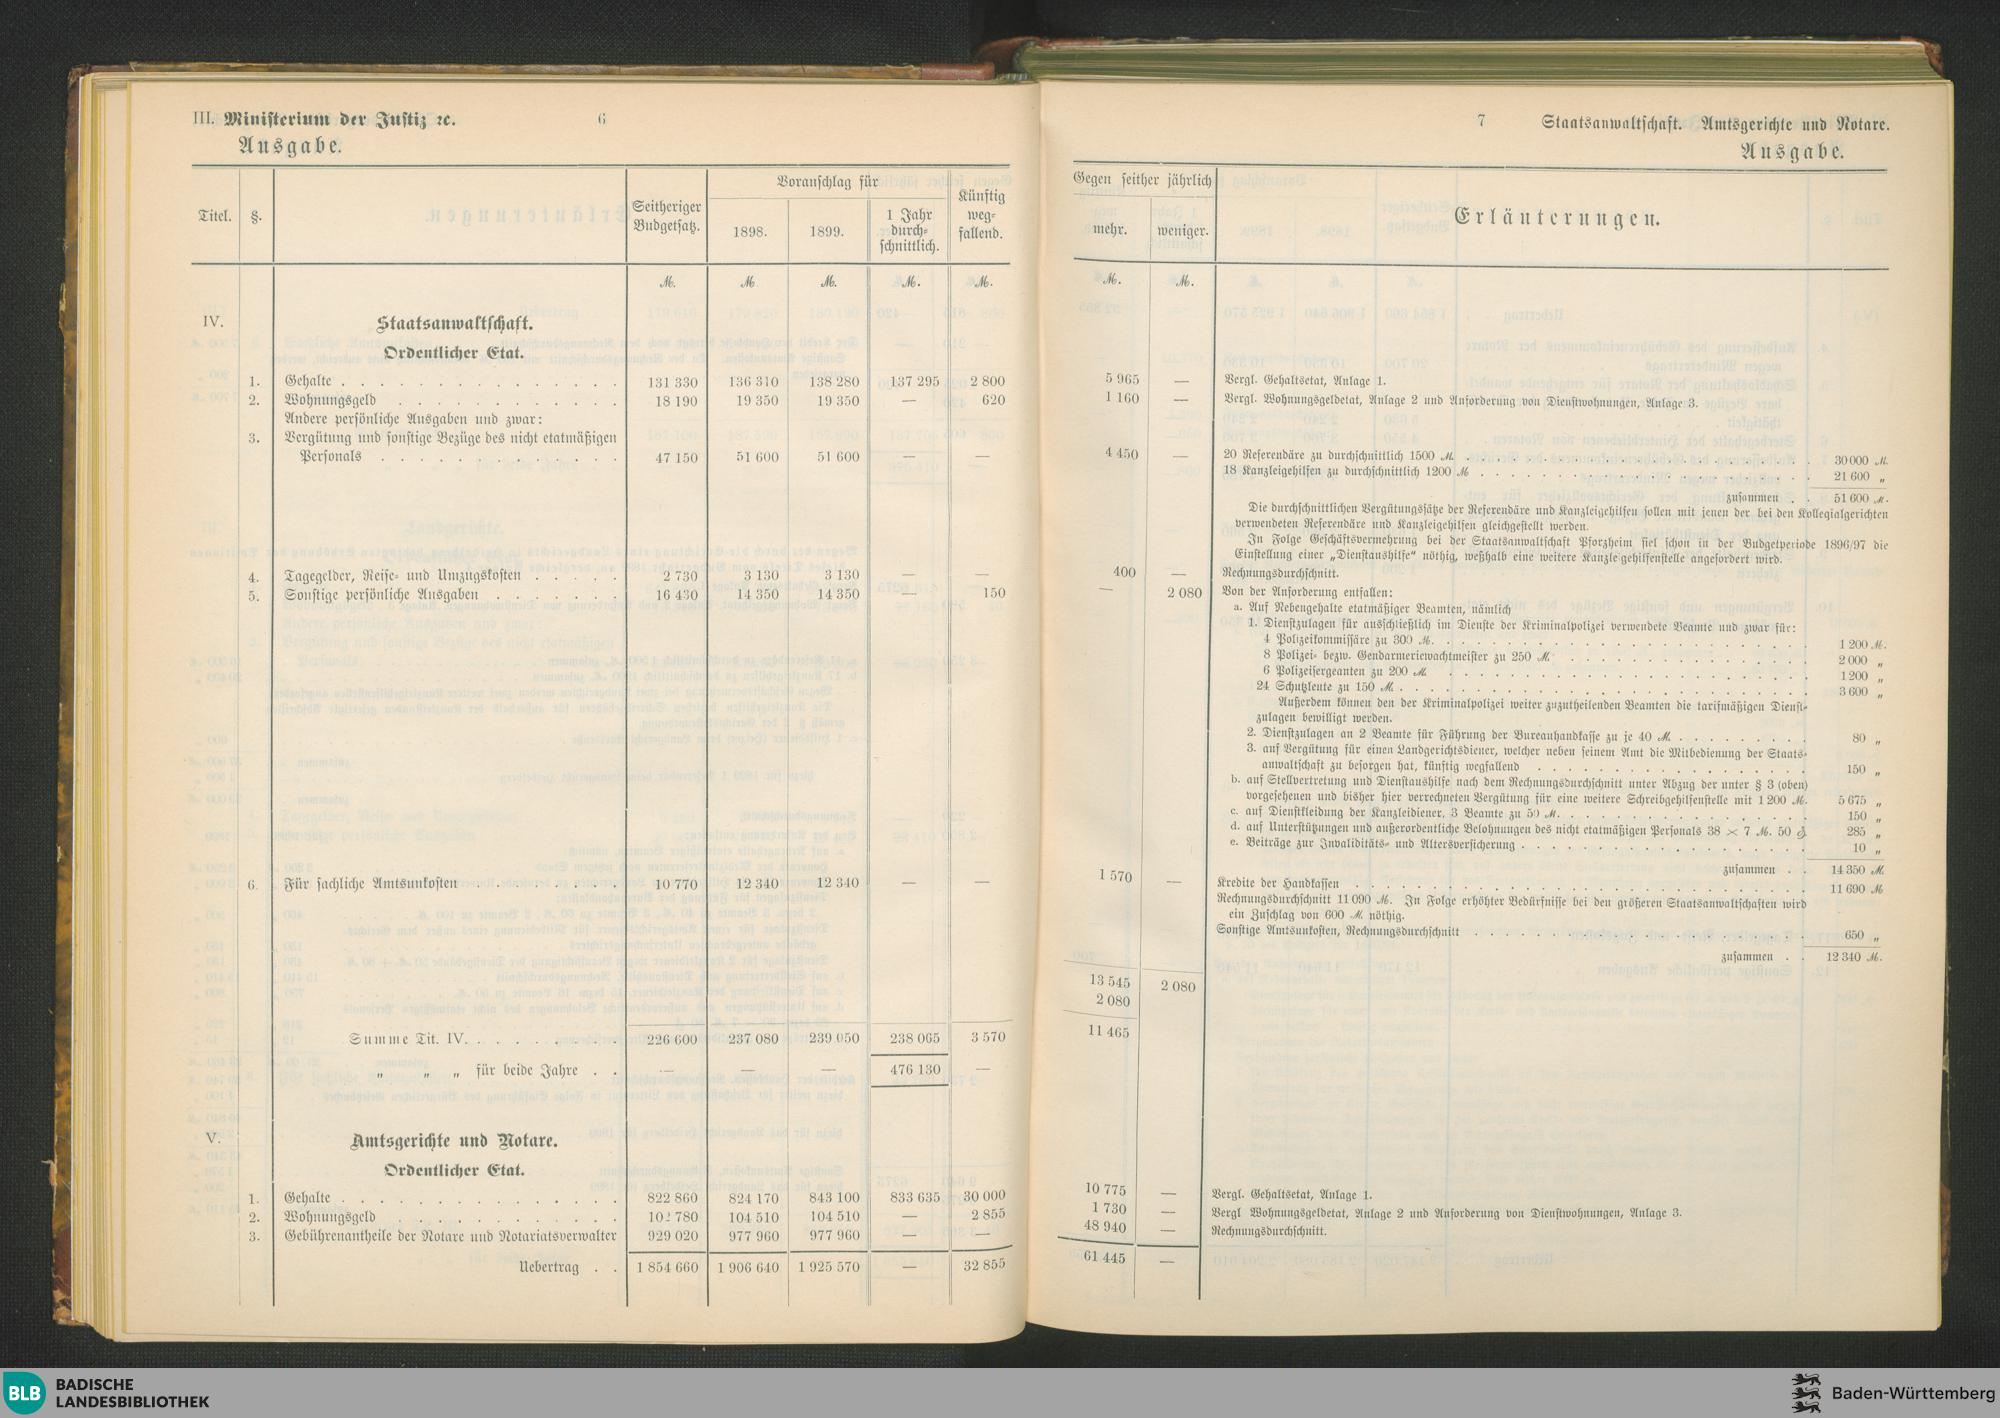 III. Ministerium der Justiz ꝛc.
6
Ausgabe.
Titel.
§.
Seitheriger Budgetsatz.
Voranschlag für
1898.
1899.
1 Jahr durch=schnittlich.
Künftig weg=fallend.
M. M. M. M. M.
IV. Staatsanwaltschaft.
Ordentlicher Etat.
1. Gehalte . . . 131 330 136 310 138 280 137 295 2 800
2. Wohnungsgeld . . . 18 190 19 350 19 350 — 620
Andere persönliche Ausgaben und zwar:
3. Vergütung und sonstige Bezüge des nicht etatmäßigen
Personals . . . 47 150 51 600 51 600 — —
4. Tagegelder, Reise= und Umzugskosten . . . 2 730 3 130 3 130 — —
5. Sonstige persönliche Ausgaben . . . 16 430 14 350 14 350 — 150
6. Für sachliche Amtsunkosten . . . 10 770 12 340 12 340 — —
Summe Tit. IV. . . . 226 600 237 080 239 050 238 065 3 570
„ „ „ für beide Jahre . . — — — 476 130 —
V. Amtsgerichte und Notare.
Ordentlicher Etat.
1. Gehalte . . . 822 860 824 170 843 100 833 635 30 000
2. Wohnungsgeld . . . 102 780 104 510 104 510 — 2 855
3. Gebührenantheile der Notare und Notariatsverwalter 929 020 977 960 977 960 — —
Uebertrag . . 1 854 660 1 906 640 1 925 570 — 32 855
7
Staatsanwaltschaft. Amtsgerichte und Notare.
Ausgabe.
Gegen seither jährlich
mehr.
weniger.
Erläuterungen.
M. M.
5 965 — Vergl. Gehaltsetat, Anlage 1.
1 160 — Vergl. Wohnungsgeldetat, Anlage 2 und Anforderung von Dienstwohnungen, Anlage 3.
4 450 — 20 Referendäre zu durchschnittlich 1500 M. . . . 30 000 M.
18 Kanzleigehilfen zu durchschnittlich 1200 M . . . 21 600 „
zusammen . . 51 600 M.
Die durchschnittlichen Vergütungssätze der Referendäre und Kanzleigehilfen sollen mit jenen der bei den Kollegialgerichten
verwendeten Referendäre und Kanzleigehilfen gleichgestellt werden.
In Folge Geschäftsvermehrung bei der Staatsanwaltschaft Pforzheim fiel schon in der Budgetperiode 1896/97 die
Einstellung einer „Dienstaushilfe“ nöthig, weßhalb eine weitere Kanzleigehilfenstelle angefordert wird.
400 — Rechnungsdurchschnitt.
— 2 080 Von der Anforderung entfallen:
a. Auf Nebengehalte etatmäßiger Beamten, nämlich
1. Dienstzulagen für ausschließlich im Dienste der Kriminalpolizei verwendete Beamte und zwar für:
4 Polizeikommissäre zu 300 M. . . . 1 200 M.
8 Polizei= bezw. Gendarmeriewachtmeister zu 250 M. . . . 2 000 „
6 Polizeisergeanten zu 200 M. . . . 1 200 „
24 Schutzleute zu 150 M. . . . 3 600 „
Außerdem können den der Kriminalpolizei weiter zuzutheilenden Beamten die tarifmäßigen Dienst=
zulagen bewilligt werden.
2. Dienstzulagen an 2 Beamte für Führung der Bureauhandkasse zu je 40 M. . . . 80 „
3. auf Vergütung für einen Landgerichtsdiener, welcher neben seinem Amt die Mitbedienung der Staats=
anwaltschaft zu besorgen hat, künftig wegfallend . . . 150 „
b. auf Stellvertretung und Dienstaushilfe nach dem Rechnungsdurchschnitt unter Abzug der unter § 3 (oben)
vorgesehenen und bisher hier verrechneten Vergütung für eine weitere Schreibgehilfenstelle mit 1 200 M. 5 675 „
c. auf Dienstkleidung der Kanzleidiener, 3 Beamte zu 50 M. . . . 150 „
d. auf Unterstützungen und außerordentliche Belohnungen des nicht etatmäßigen Personals 38 × 7 M. 50 ₰ 285 „
e. Beiträge zur Invaliditäts= und Altersversicherung . . . 10 „
zusammen . . 14 350 M.
1 570 — Kredite der Handkassen . . . 11 690 M
Rechnungsdurchschnitt 11 090 M. In Folge erhöhter Bedürfnisse bei den größeren Staatsanwaltschaften wird
ein Zuschlag von 600 M. nöthig.
Sonstige Amtsunkosten, Rechnungsdurchschnitt . . . 650 „
zusammen . . 12 340 M.
13 545 2 080
2 080
11 465
10 775 — Vergl. Gehaltsetat, Anlage 1.
1 730 — Vergl Wohnungsgeldetat, Anlage 2 und Anforderung von Dienstwohnungen, Anlage 3.
48 940 — Rechnungsdurchschnitt.
61 445 —
BLB BADISCHE
LANDESBIBLIOTHEK
Baden-Württemberg